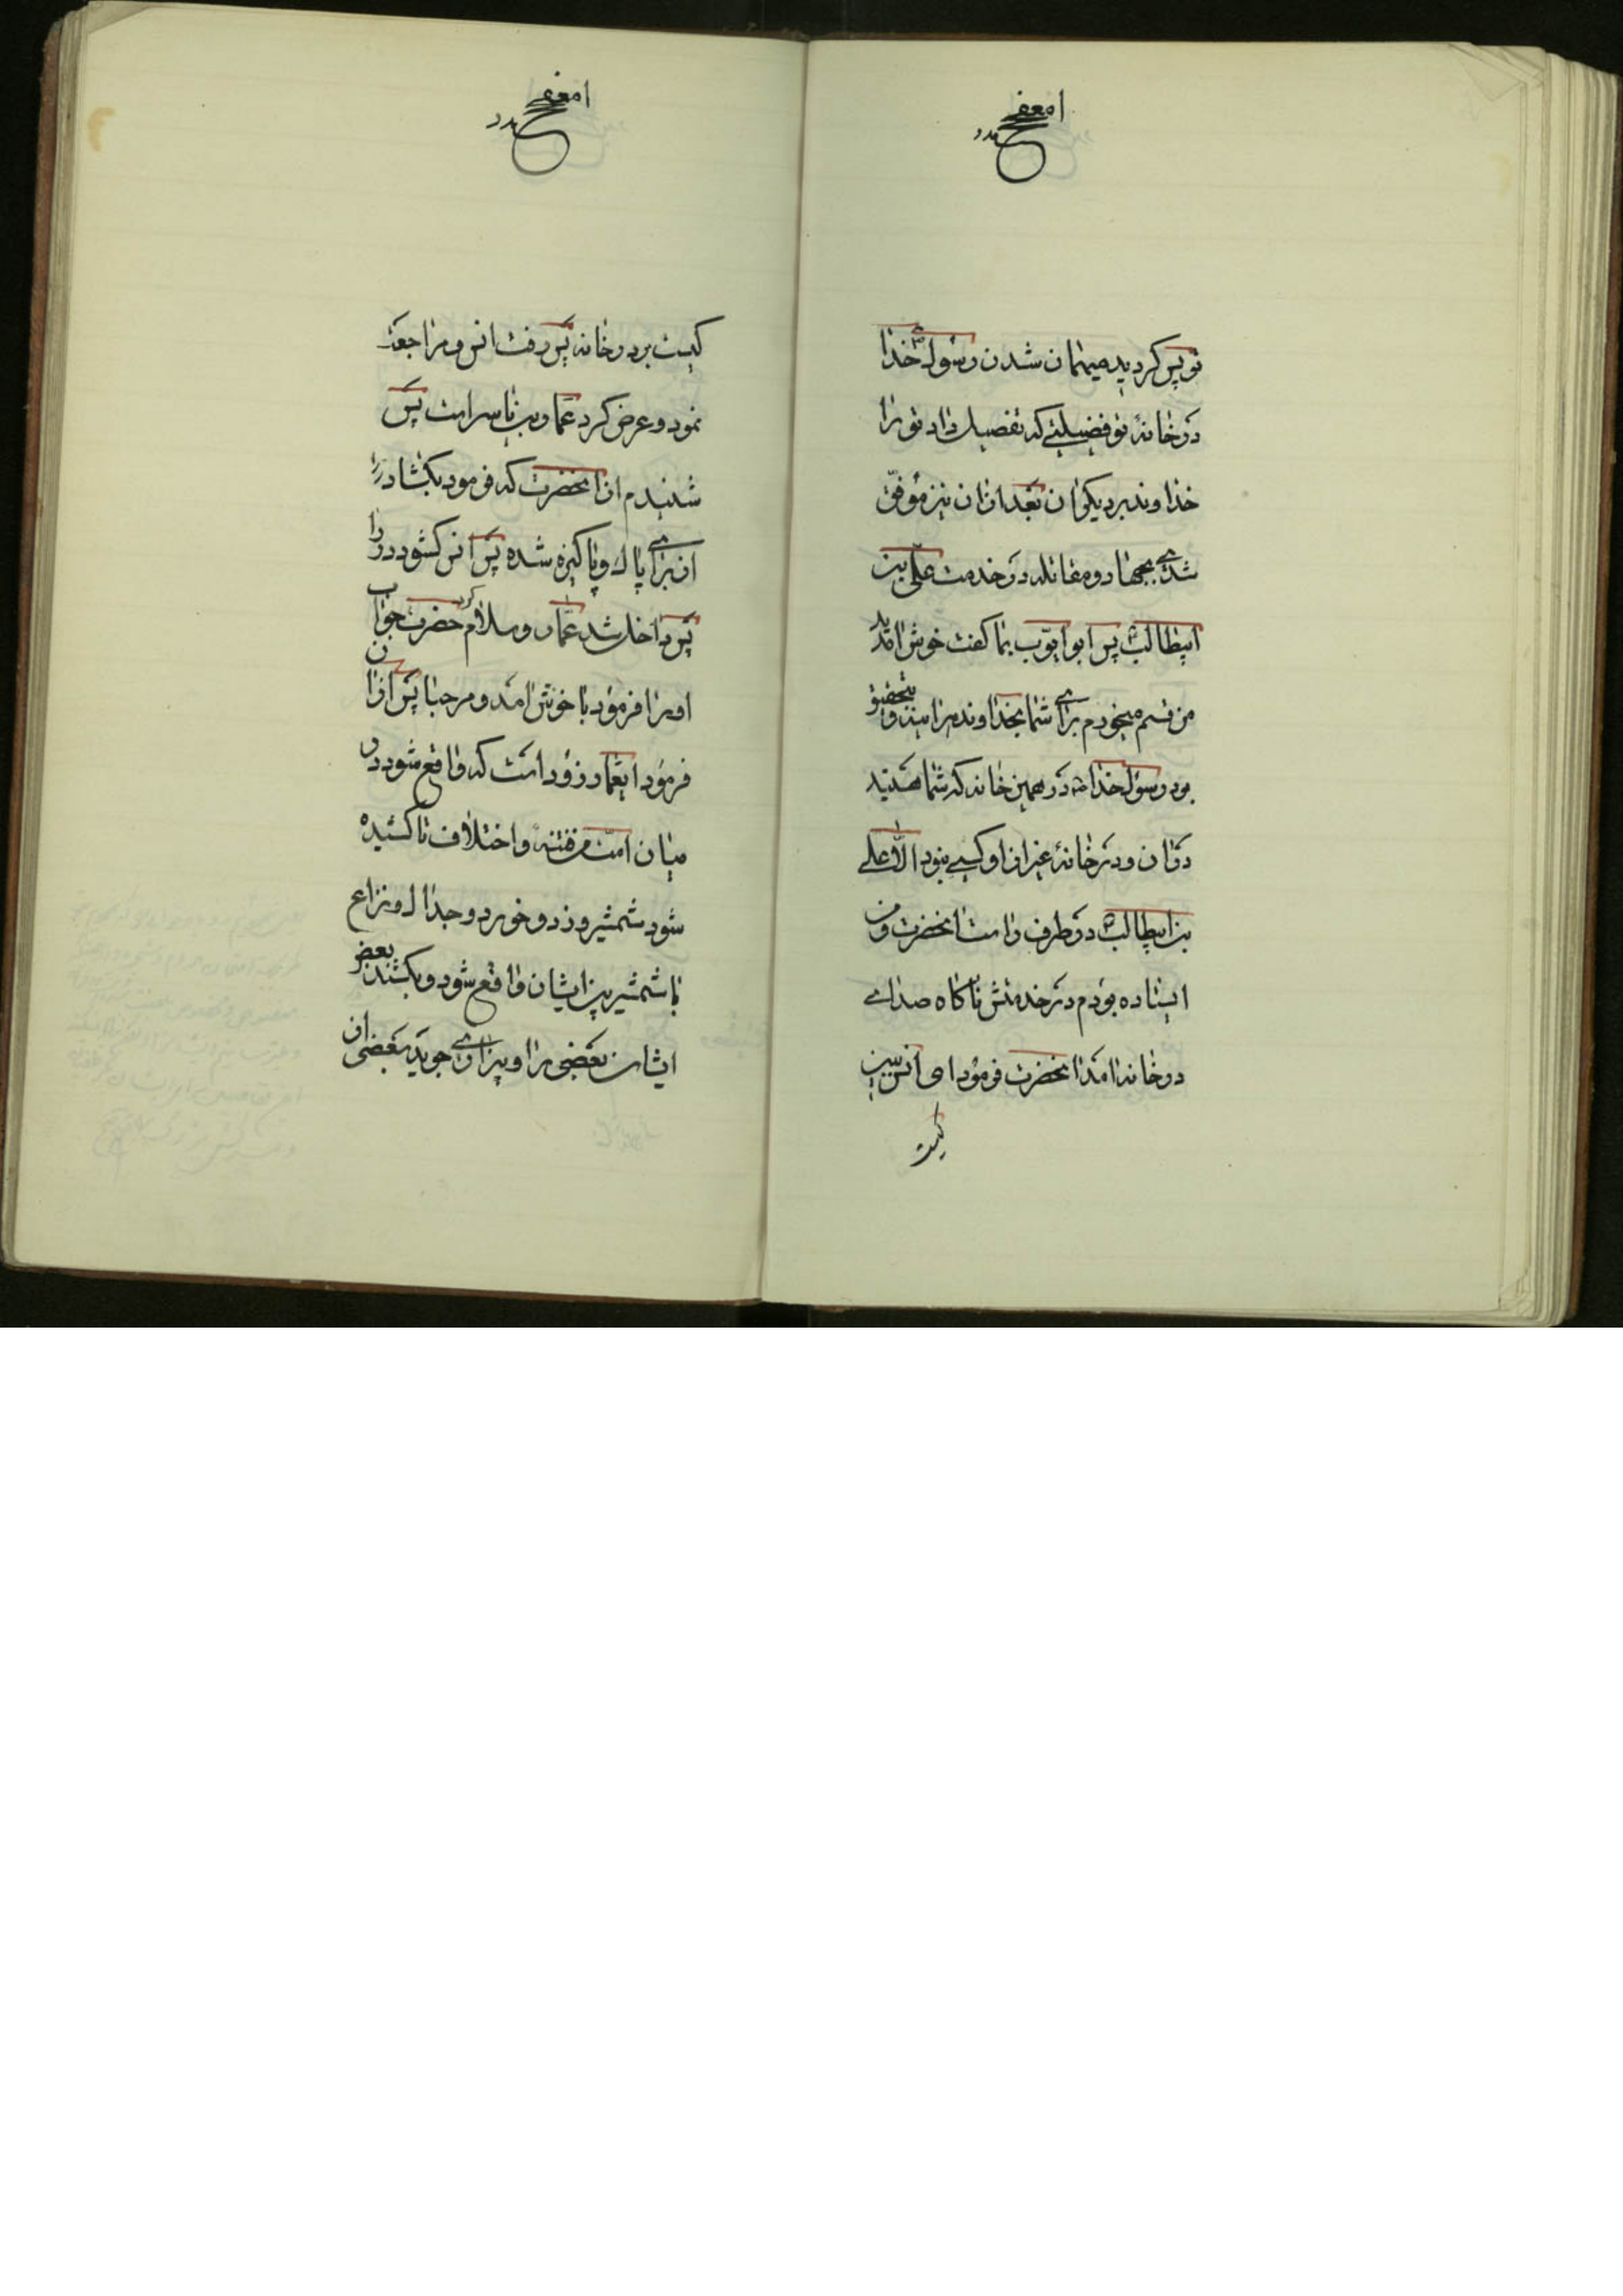 تو پس گردید میهمان شدن رسول خدا
در خانهٔ تو فضیلتی که تفضیل داد تو را
خداوند بر دیگران بعد از آن نیز موفق
شدی بجهاد و مقاتله در خدمت علی بن
ابیطالب پس ابو ایوب بما گفت خوش امدید
من قسم میخورم برای شما بخداوند بتحقیق
بود رسول خدا در همین خانه که شما هستید
در ان و در خانه غیر از او کسی نبود الا علی
بن ابیطالب در طرف راست انحضرت و من
ایستاده بودم در خدمتش ناکاه صدای
در خانه امد انحضرت فرمود ای انس ببین
کیست
کیست بر در خانه پس رفت انس و مراجعت
نمود و عرض کرد عمار بن یاسر است پس
شنیدم از انحضرت که فرمود بکشا در را
از برای پاک و پاکیزه شده پس انس کشود در را
پس داخل شد عمار و سلام کرد حضرت جواب
او را فرمود با خوش امد و مرحبا پس از ان
فرمود ایعمار زود است که واقع شود در
میان امت من فتنه و اختلاف تا کشیده
شود شمشیر و زد و خورد و جدال و نزاع
با شمشیر بین ایشان واقع شود و بکشند بعض
ایشان بعضی را و بیزاری جوید بعضی از